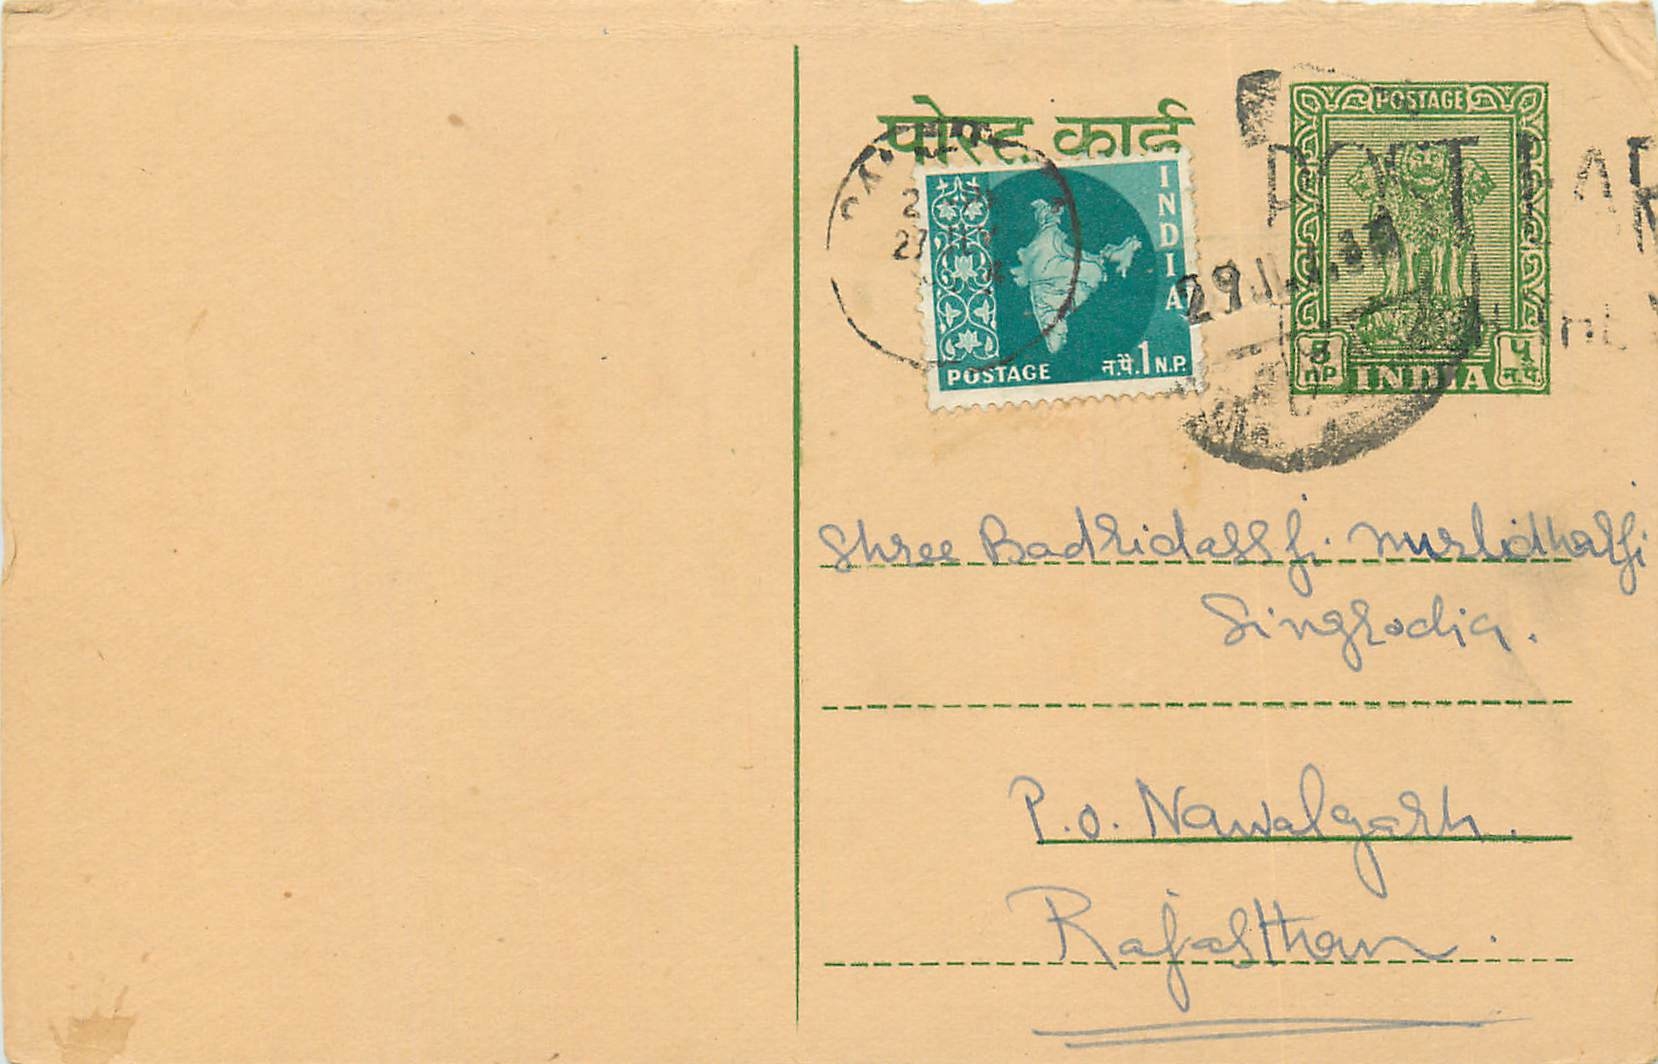 पोस्ट कार्ड
POSTAGE
INDIA
POSTAGE न.पै. 1 N.P.
5 nP INDIA ५ न.पै.
POST CAR
Shree Badridassji. Murlidharji
Singhodia.
P.O. Nawalgarh.
Rajasthan.